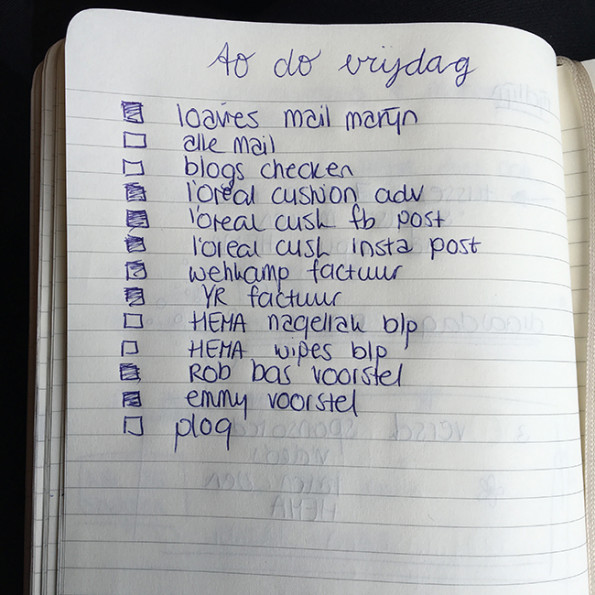 To do vrijdag
loavies mail martijn
alle mail
blogs checken
l'oreal cushion adv
l'oreal cush fb post
l'oreal cush insta post
wehkamp factuur
YR factuur
HEMA nagellak blp
HEMA wipes blp
Rob bas voorstel
emmy voorstel
plog